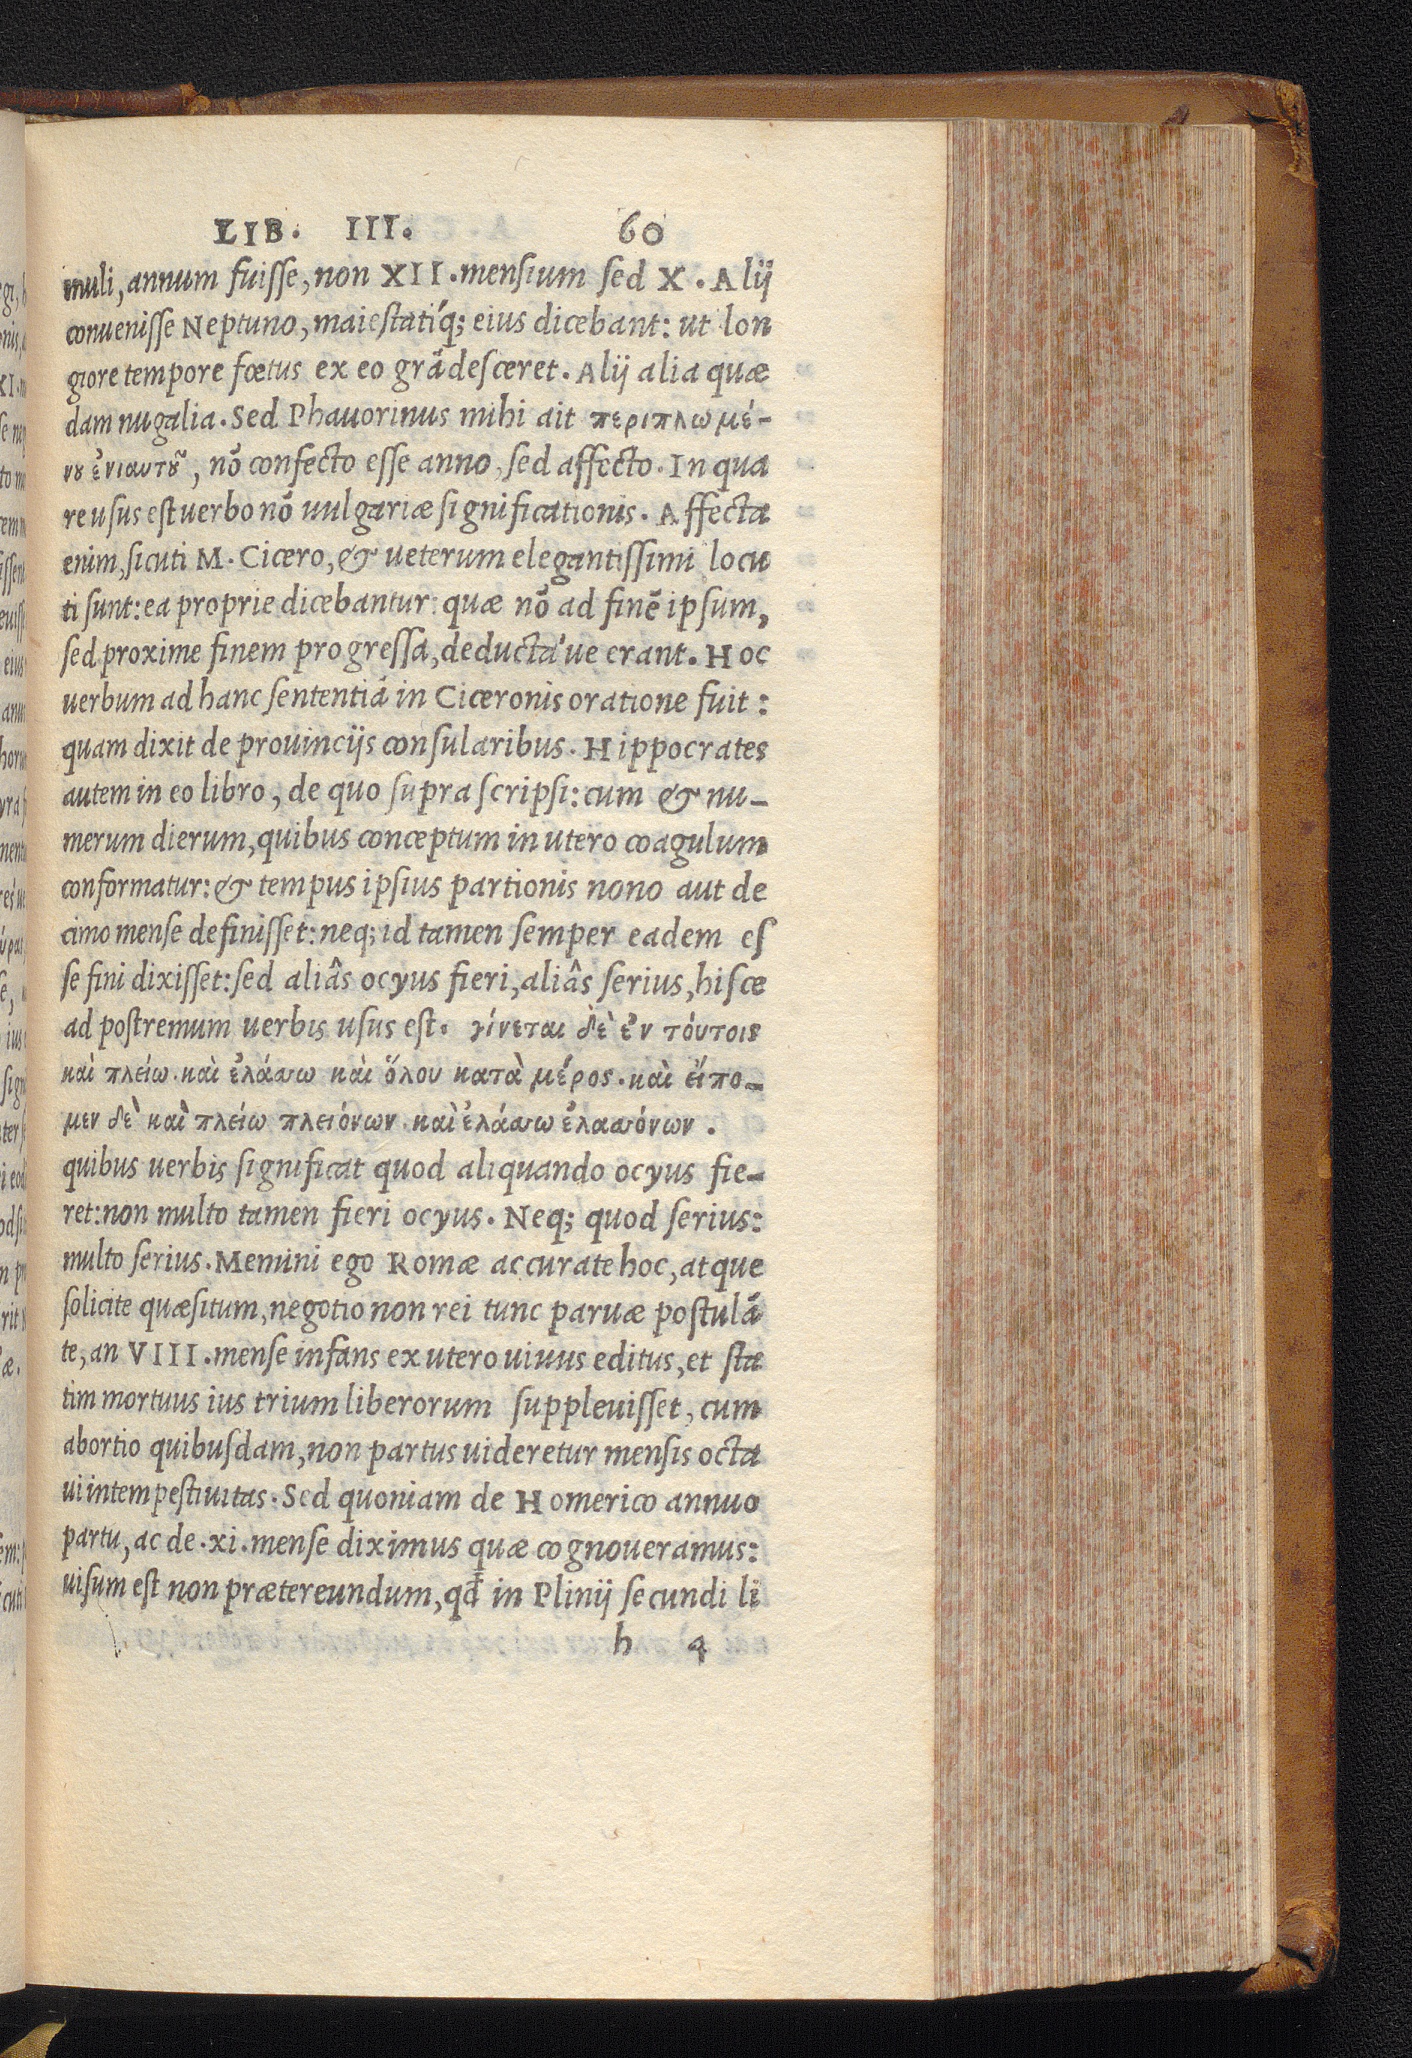 LIB. III. 60
muli, annum fuisse, non XII. mensium sed X. Alij
conuenisse Neptuno, maiestatíq; eius dicebant: ut lon
giore tempore fœtus ex eo grãdesceret. Alij alia quæ
dam nugalia. Sed Phauorinus mihi ait περιπλωμέ-
νȣ ἐνιαυτȣ͂, nõ confecto esse anno, sed affecto. In qua
re usus est uerbo nõ uulgariæ significationis. Affecta
enim, sicuti M. Cicero, & ueterum elegantissimi locu
ti sunt: ea proprie dicebantur: quæ nõ ad finẽ ipsum,
sed proxime finem progressa, deductá'ue erant. Hoc
uerbum ad hanc sententiã in Ciceronis oratione fuit:
quam dixit de prouincijs consularibus. Hippocrates
autem in eo libro, de quo supra scripsi: cum & nu-
merum dierum, quibus conceptum in utero coagulum
conformatur: & tempus ipsius partionis nono aut de
cimo mense definisset: neq; id tamen semper eadem es
se fini dixisset: sed aliâs ocyus fieri, aliâs serius, hisce
ad postremum uerbis usus est. γίνεται δὲ ἐν τόυτοις
καὶ πλείω. καὶ ἐλάσσω καὶ ὅλου κατὰ μέρος. καὶ εἴπο-
μεν δὲ καὶ πλείω πλειόνων. καὶ ἐλάσσω ἐλασσόνων.
quibus uerbis significat quod aliquando ocyus fie-
ret: non multo tamen fieri ocyus. Neq; quod serius:
multo serius. Memini ego Romæ accurate hoc, atque
solicite quæsitum, negotio non rei tunc paruæ postulã
te, an VIII. mense infans ex utero uiuus editus, et sta
tim mortuus ius trium liberorum suppleuisset, cum
abortio quibusdam, non partus uideretur mensis octa
ui intempestiuitas. Sed quoniam de Homerico annuo
partu, ac de .xi. mense diximus quæ cognoueramus:
uisum est non prætereundum, qđ in Plinij secundi li
h 4